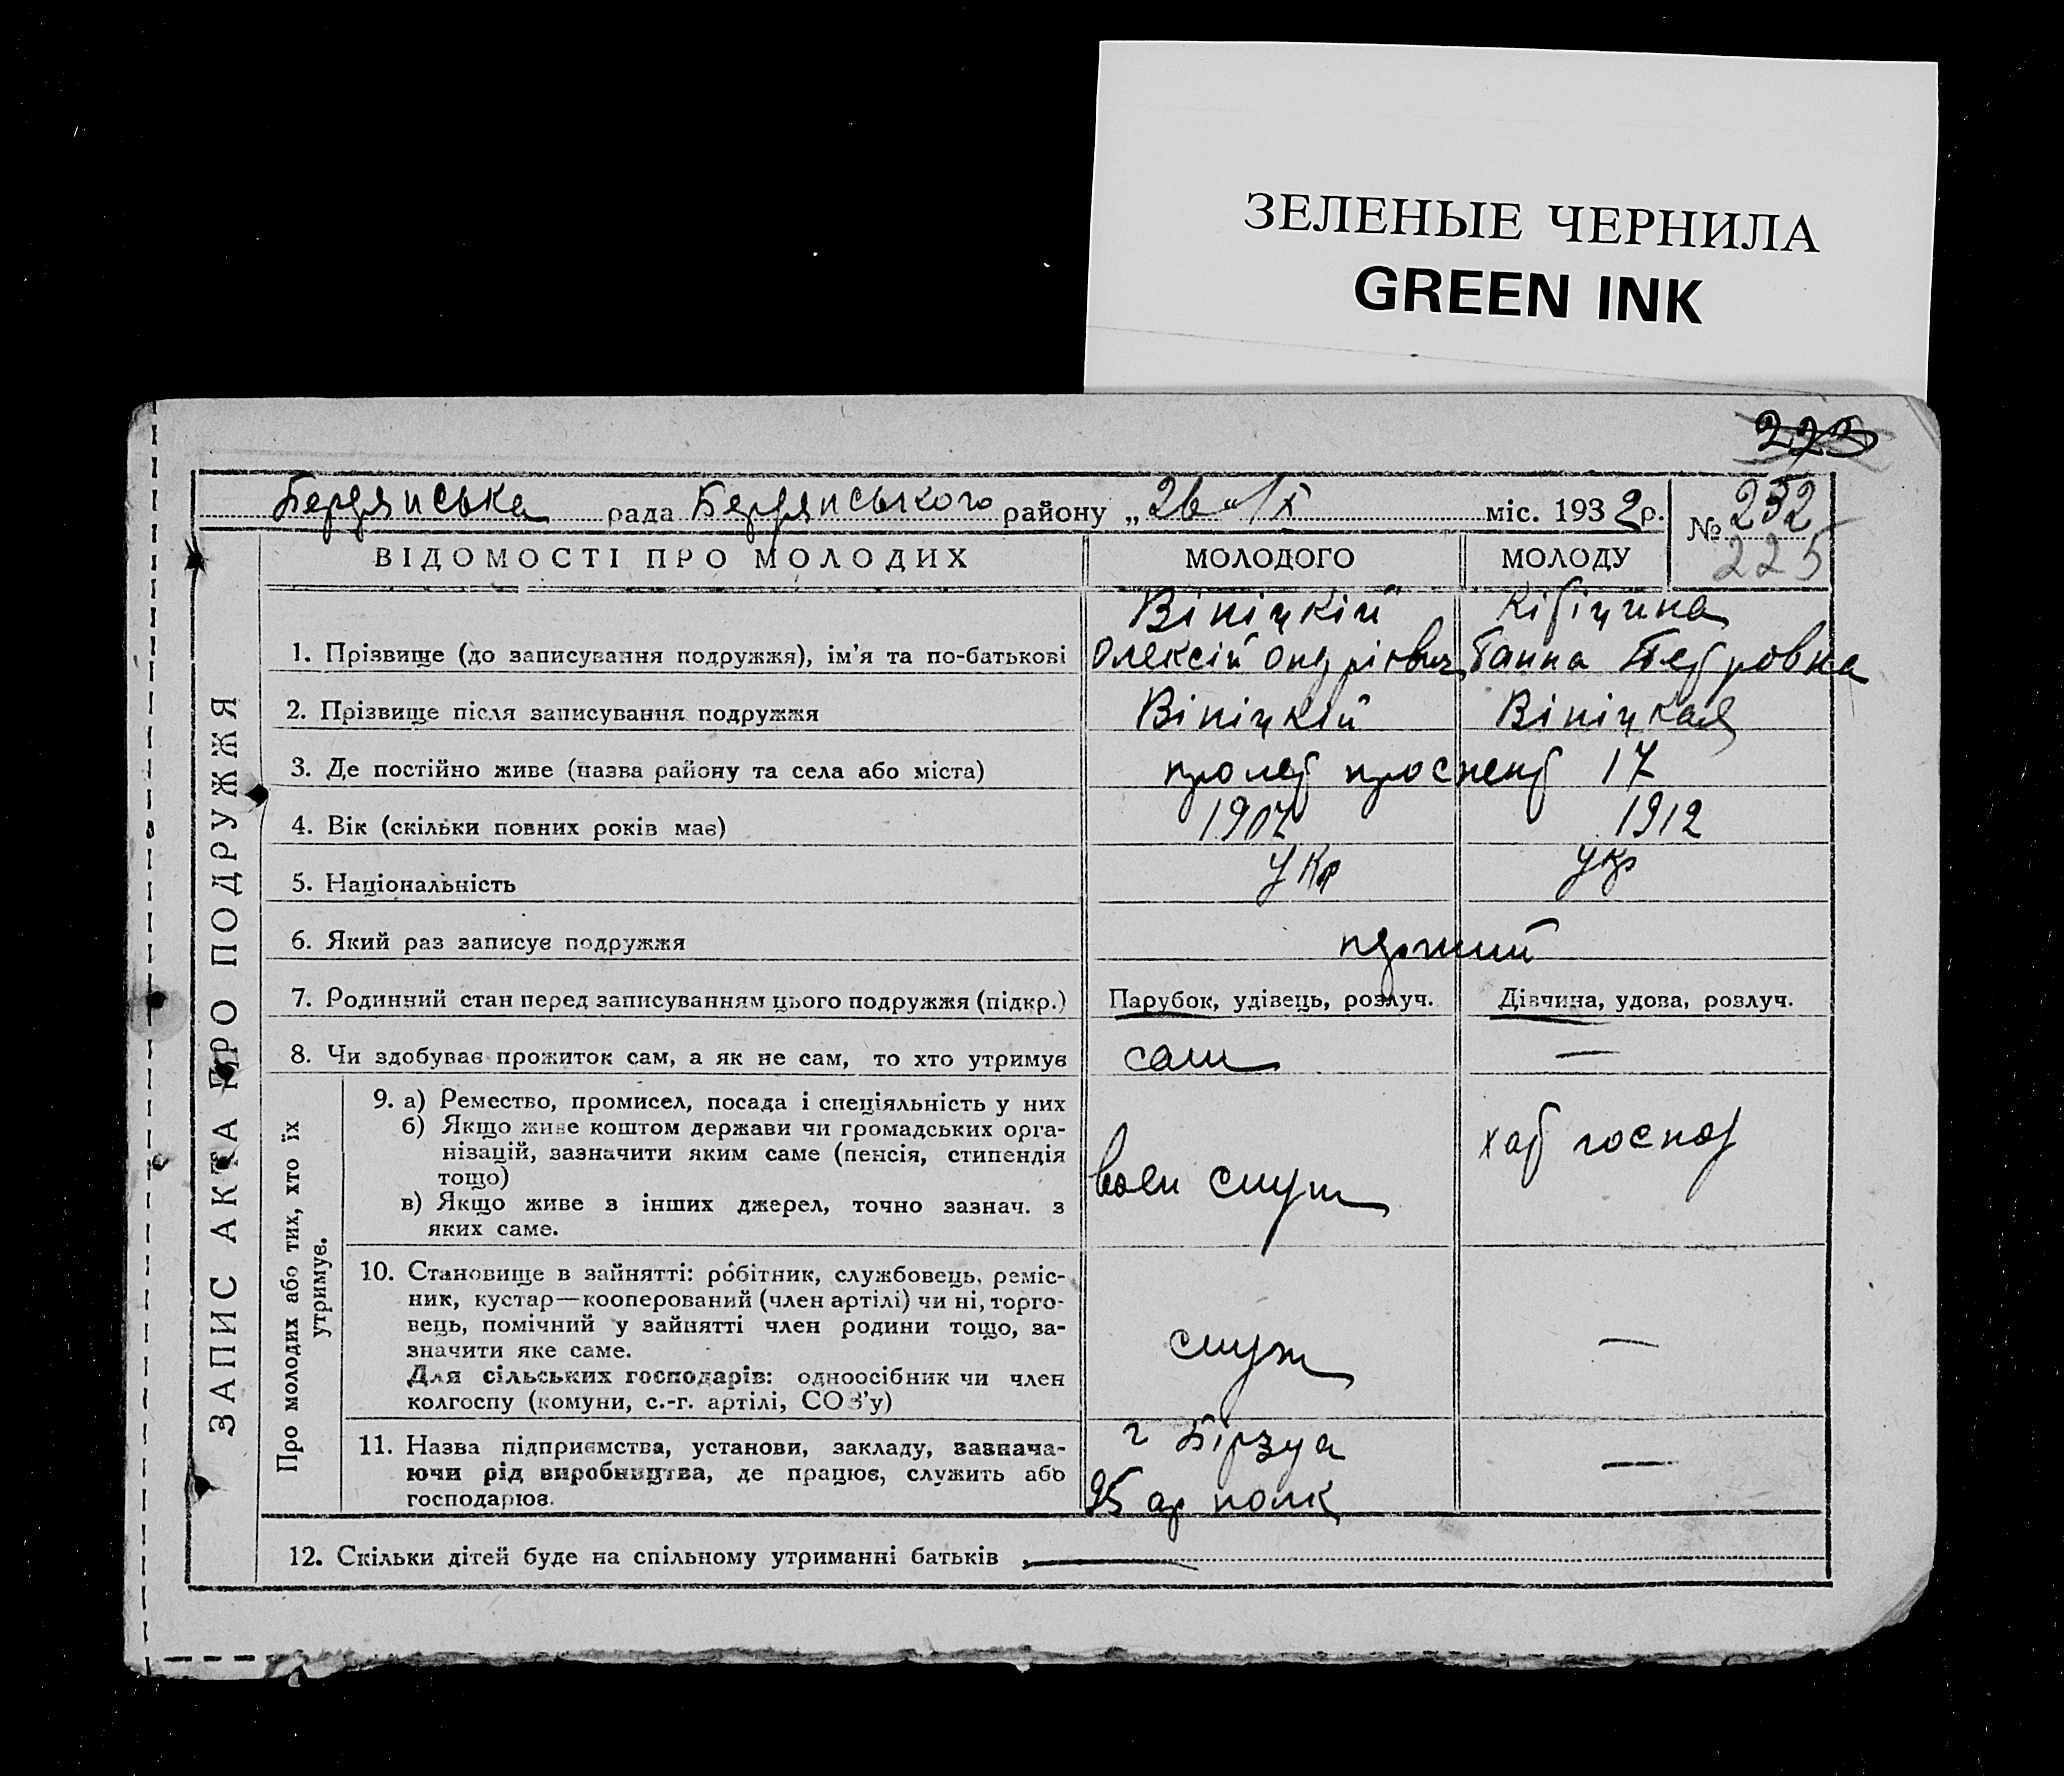 ЗЕЛЕНЫЕ ЧЕРНИЛА
GREEN INK
223
Бердянська рада Бердянського району „26“ IX міс. 1932 р. № 232
225
ВІДОМОСТІ ПРО МОЛОДИХ МОЛОДОГО МОЛОДУ
ЗАПИС АКТА ПРО ПОДРУЖЖЯ
Вініцкій Кібічина
1. Прізвище (до записування подружжя), ім'я та по-батькові Олексій Ондрієвич Ганна Петровна
2. Прізвище після записування подружжя Вініцкій Вініцкая
3. Де постійно живе (назва району та села або міста) пролет проспект 17
4. Вік (скільки повних років має) 1907 1912
5. Національність укр укр
6. Який раз записує подружжя перший
7. Родинний стан перед записуванням цього подружжя (підкр.) Парубок, удівець, розлуч. Дівчина, удова, розлуч.
8. Чи здобуває прожиток сам, а як не сам, то хто утримує сам —
Про молодих або тих, хто їх
утримує.
9. а) Ремество, промисел, посада і спеціяльність у них
б) Якщо живе коштом держави чи громадських орга-
нізацій, зазначити яким саме (пенсія, стипендія
тощо)
в) Якщо живе з інших джерел, точно зазнач. з
яких саме.
воен служ хат господ
10. Становище в зайнятті: робітник, службовець, реміс-
ник, кустар—кооперований (член артілі) чи ні, торго-
вець, помічний у зайнятті член родини тощо, за-
значити яке саме.
Для сільських господарів: одноосібник чи член
колгоспу (комуни, с.-г. артілі, СОЗ'у)
служ —
11. Назва підприємства, установи, закладу, зазнача-
ючи рід виробництва, де працює, служить або
господарює.
г Бірзуа —
95 ар полк
12. Скільки дітей буде на спільному утриманні батьків —